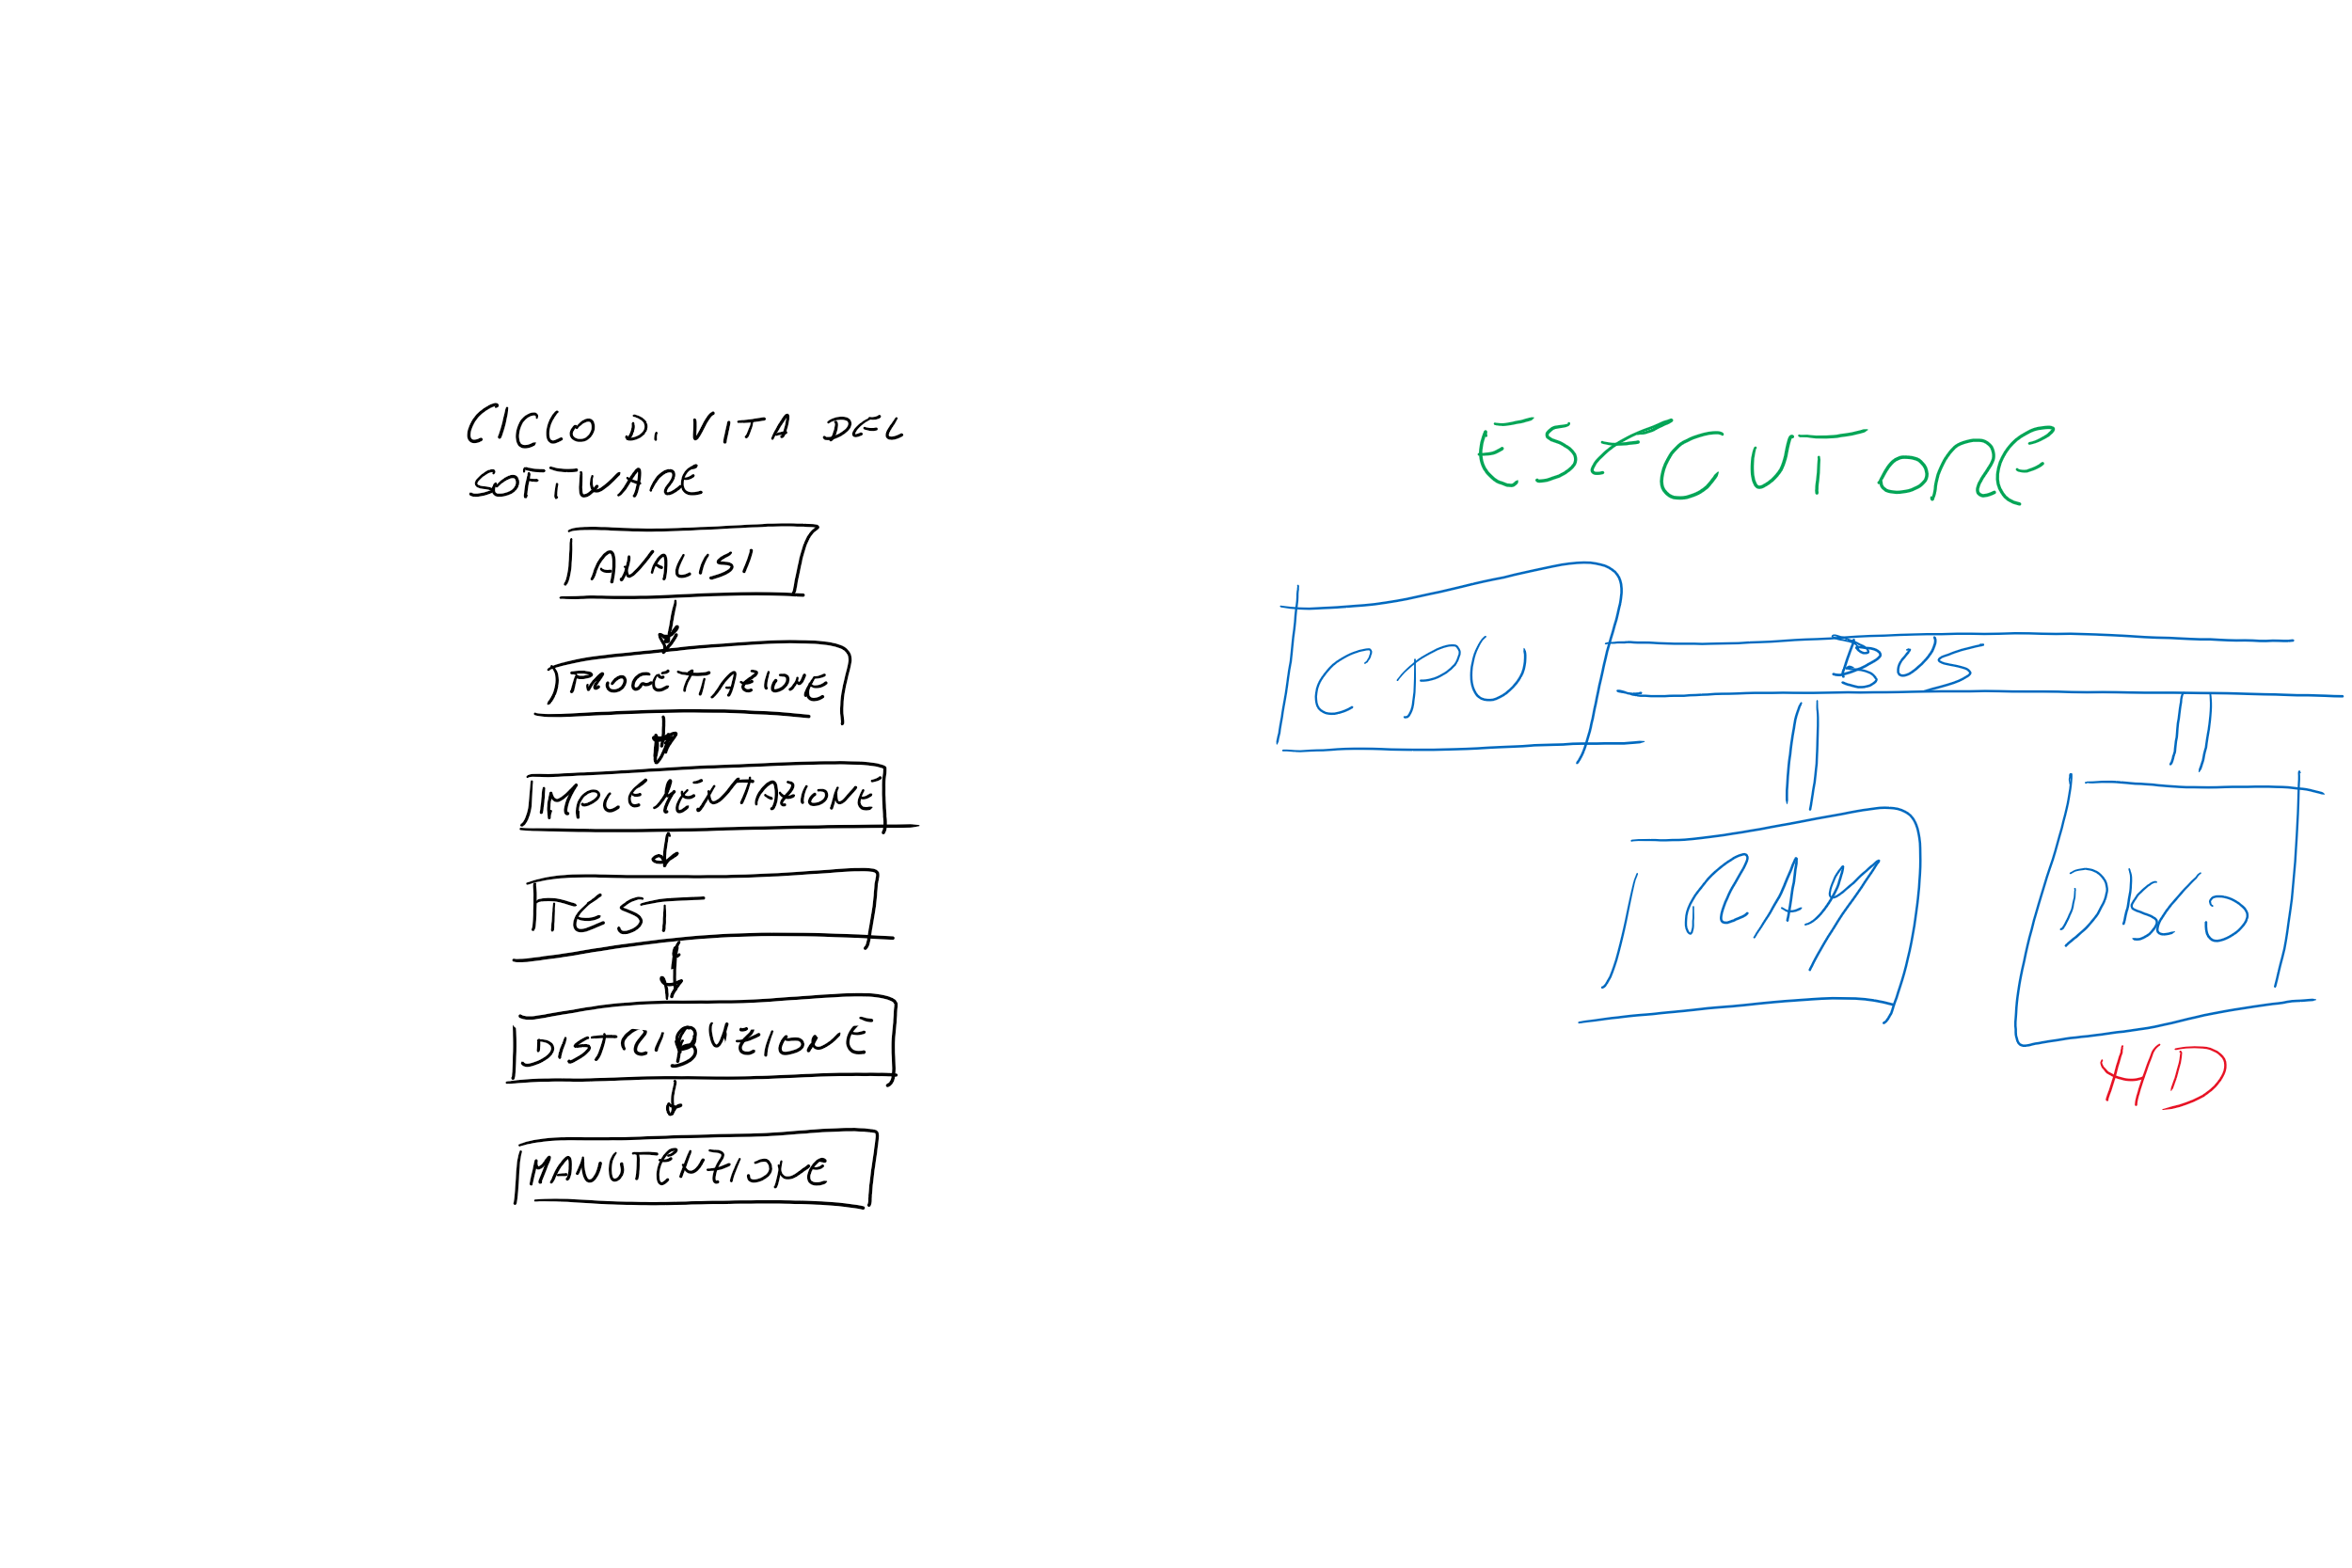 CICLO DI VITA DEL
SOFTWARE
ANALISI
PROGETTAZIONE
IMPLEMENTAZIONE
TEST
DISTRIBUZIONE
MANUTENZIONE
ESECUTORE
CPU
BUS
RAM
DISCO
HD